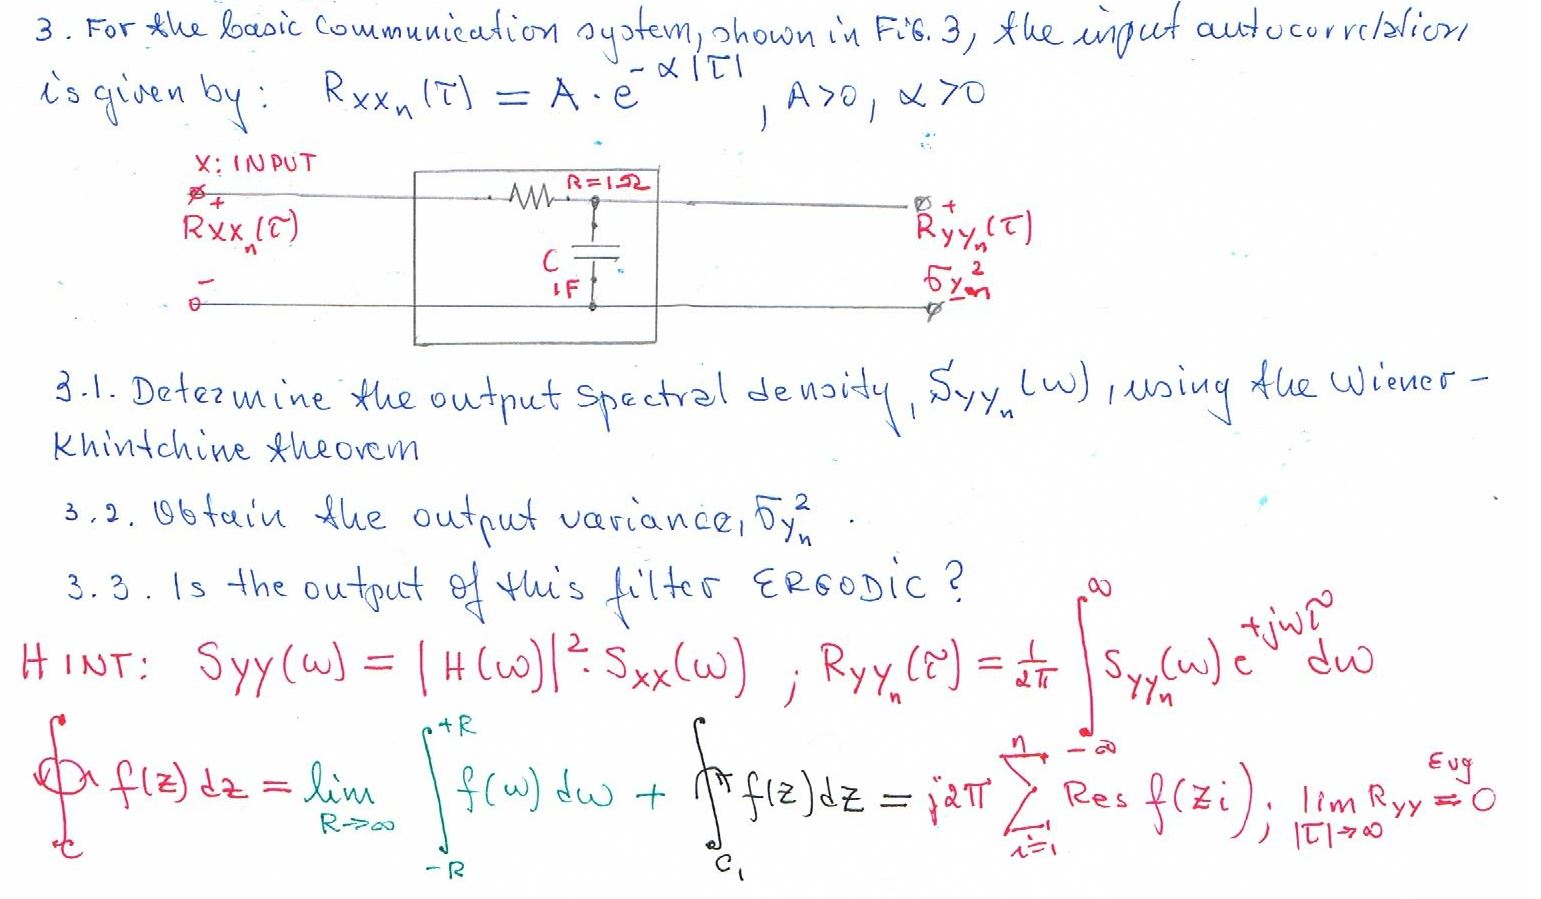 3. For the basic Communication system, shown in FIG. 3, the input autocorrelation
is given by: Rxxₙ(τ) = A · e^(-α|τ|), A>0, α>0
X: INPUT
R=1Ω
+
+
Rxxₙ(τ)
Ryyₙ(τ)
C
1F
σyₙ²
-
3.1. Determine the output spectral density, Syyₙ(ω), using the Wiener-
Khintchine theorem
3.2. Obtain the output variance, σyₙ².
3.3. Is the output of this filter ERGODIC?
HINT: Syy(ω) = |H(ω)|² · Sxx(ω) ; Ryyₙ(τ) = 1/2π ∫_{-∞}^{∞} Syyₙ(ω) e^{+jωτ} dω
∮_C f(z) dz = lim_{R→∞} ∫_{-R}^{+R} f(ω) dω + ∫_{C₁} f(z) dz = j2π Σ_{i=1}^{n} Res f(zi) ; lim_{|τ|→∞} Ryy = 0